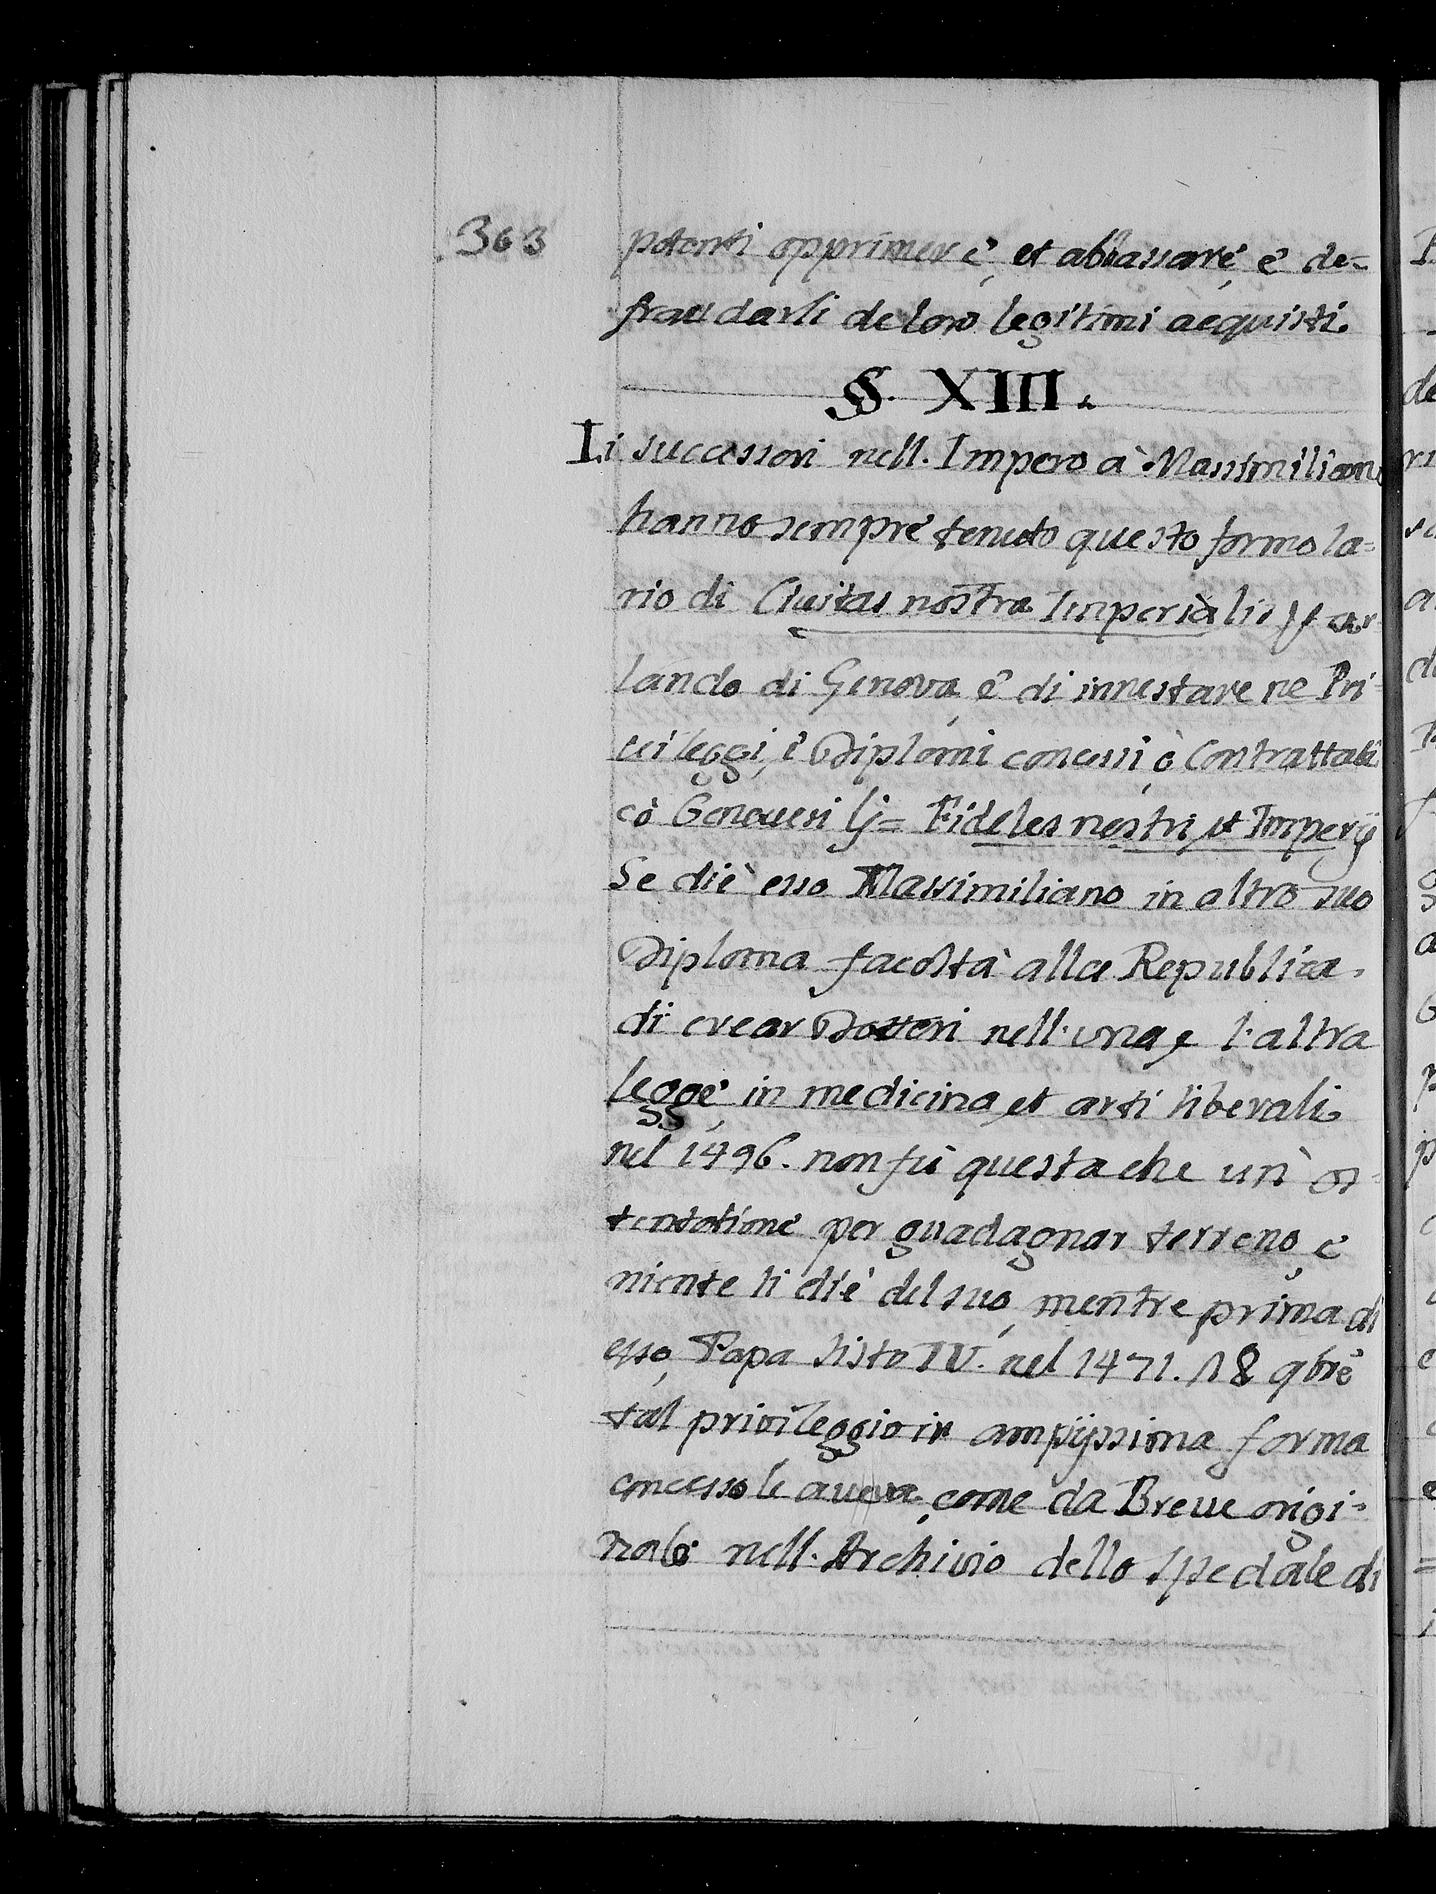 363
potenti opprimerè, et abbassarè, è de-
fraudarli de loro legitimi acquisti.
§. XIII.
Li successori nell. Impero à Massimiliano
hanno semprè tenuto questo formola=
rio di Ciuitas nostra Imperialis par=
lando di Genova, è di innestare ne Pri=
uileggi, è Diplomi concessi, ò Contrattati
cò Genouesi lj= Fideles nostri et Imperij
Se diè esso Massimiliano in altro suo
Diploma facoltà alla Republica
di crear Dottori nell. una, e l'altra
leggè, in medicina, et arti liberali
nel 1496. non fù questa che unì os=
tentationè per guadagnar terreno, è
niente li diè del suo, mentre prima di
esso, Papa Sisto IV. nel 1471. 18 qbrè
tal priuileggio in ampijssima forma
concesso le aueua, come da Breue origi=
nale nell. Archivio dello Spedale di